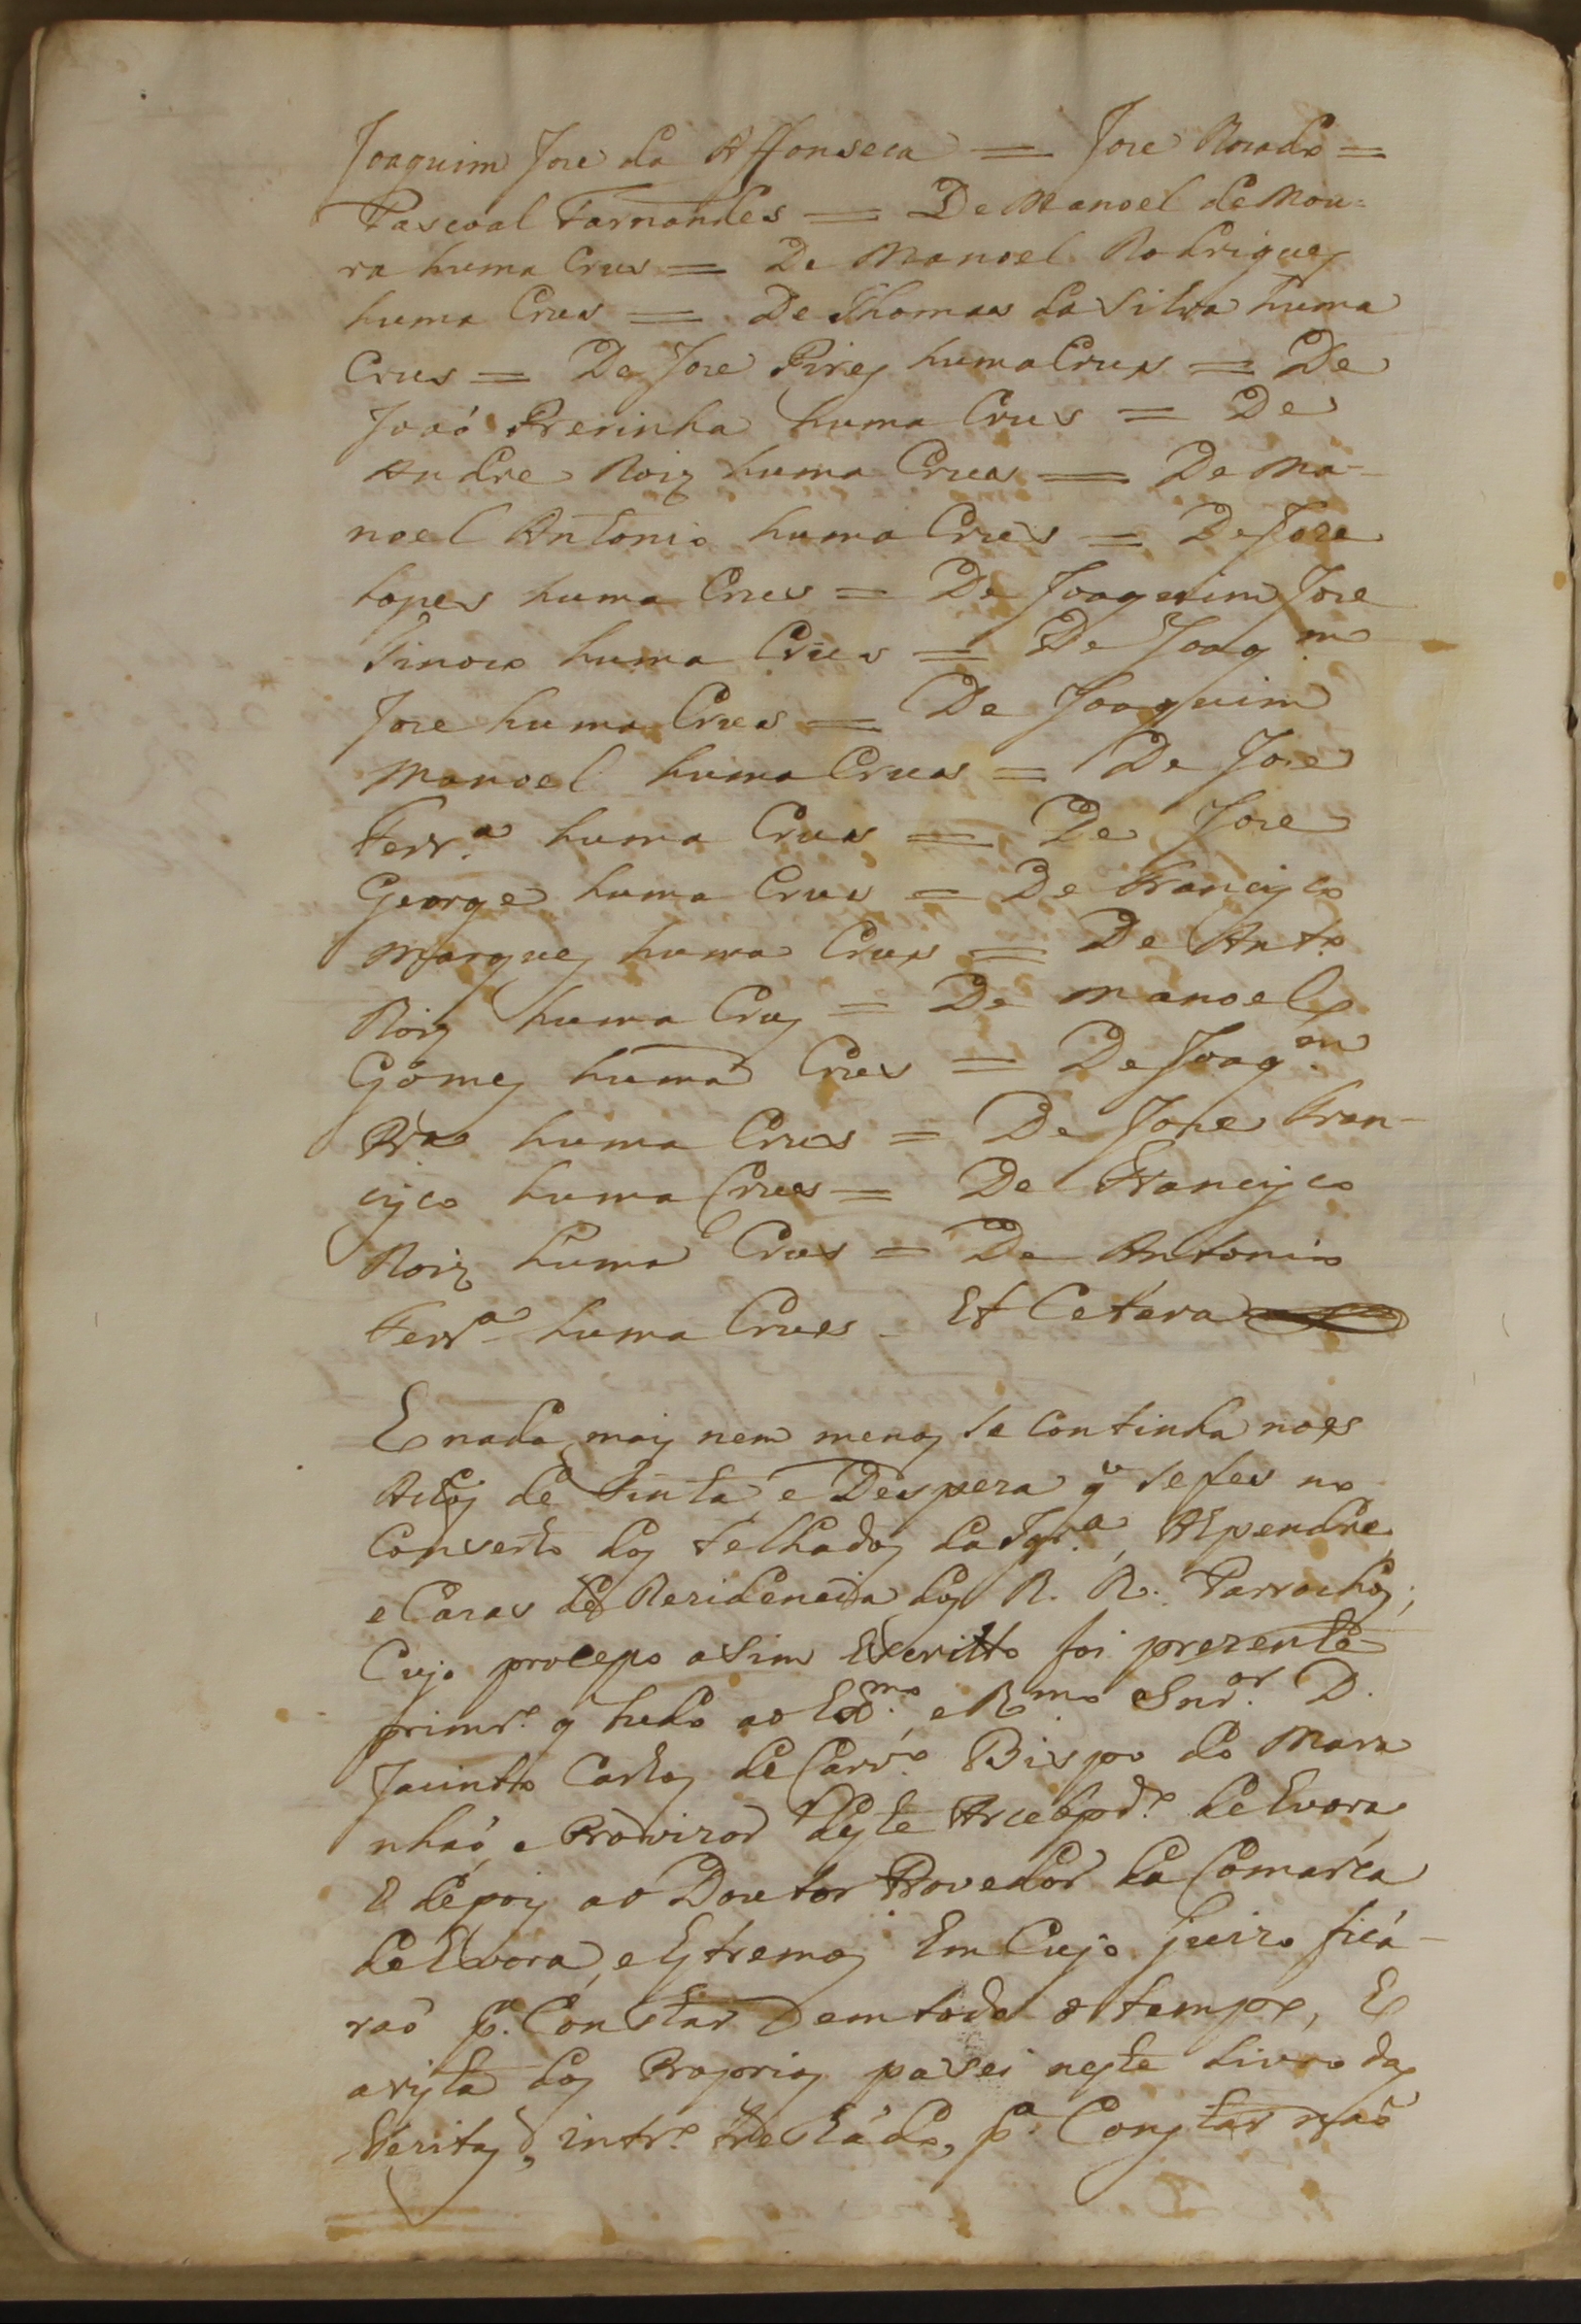 Joaquim Jose da Affonseca = Jose Rosado =
Pascoal Farnandes = De Manoel de Mou=
ra huma Crus = De Manoel Rodrigues
huma Crus = De Thomas da Silva huma
Crus = De Jose Pires huma Crus = De
Joaó Prerinha huma Crus = De
Andre Roiz huma Crus = De Ma-
noel Antonio huma Crus = De Jose
Lopes huma Crus = De Joaquim Jose
Tinoco huma Crus = De Joaq.m
Jose huma Crus = De Joaquim
Manoel huma Crus = De Jose
Ferr.a huma Crus = De Jose
George huma Crus = De Francisco
Marques huma Crus = De Ant.o
Roiz huma Crus = De Manoel
Gomes huma Crus = De Joaq.m
huma Crus = De Jose Fran-
cisco huma Crus = De Francisco
Roiz huma Crus = De Antonio
Ferr.a huma Crus - Et Cetera
E nada mais nem menos se continha nos
Autos de Finta e Despeza q̃ se fes no
Conserto dos telhados da Igr.a, Alpendre,
e Cazas de Rezidencia dos R. R. Parrochos;
Cujo processo asim Escritto foi prezente
primr.o q̃ tudo ao Ex.mo e R.mo Snr.or D.
Jacinto Carlos de Carv.o Bispo do Mara
nhaó, e Provizor deste Arcebpd.o de Evora,
E depois ao Doutor Provedor da Comarca
de Evora, e Estremos Em Cujo juizo ficá-
raó p.a Constar em todo o tempo, E
a vista dos Proprios pasei neste Livro das
Vezitas, intr.o treslado, p.a Constar naó